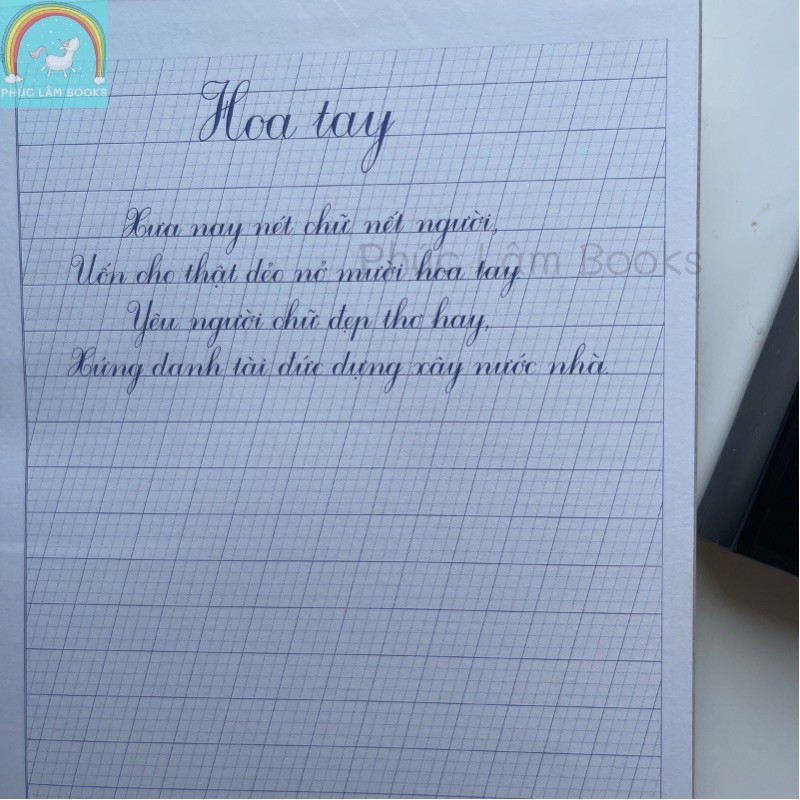 PHÚC LÂM BOOKS
Hoa tay
Xưa nay nét chữ nết người,
Uốn cho thật dẻo nở mười hoa tay
Phúc Lâm Books
Yêu người chữ đẹp thơ hay,
Xứng danh tài đức dựng xây nước nhà.